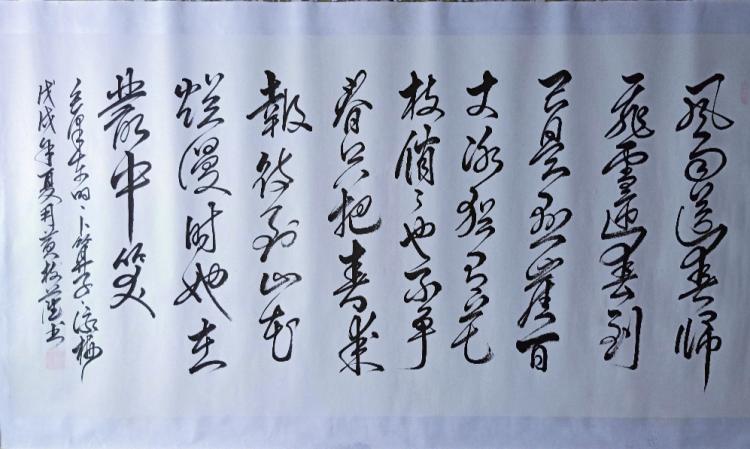 風雨送春歸
飛雪迎春到
已是悬崖百
丈冰猶有花
枝俏〻也不争
春只把春來
報待到山花
爛漫時她在
叢中笑
毛澤東的、卜算子、詠梅
戊戌年夏月黄枝書